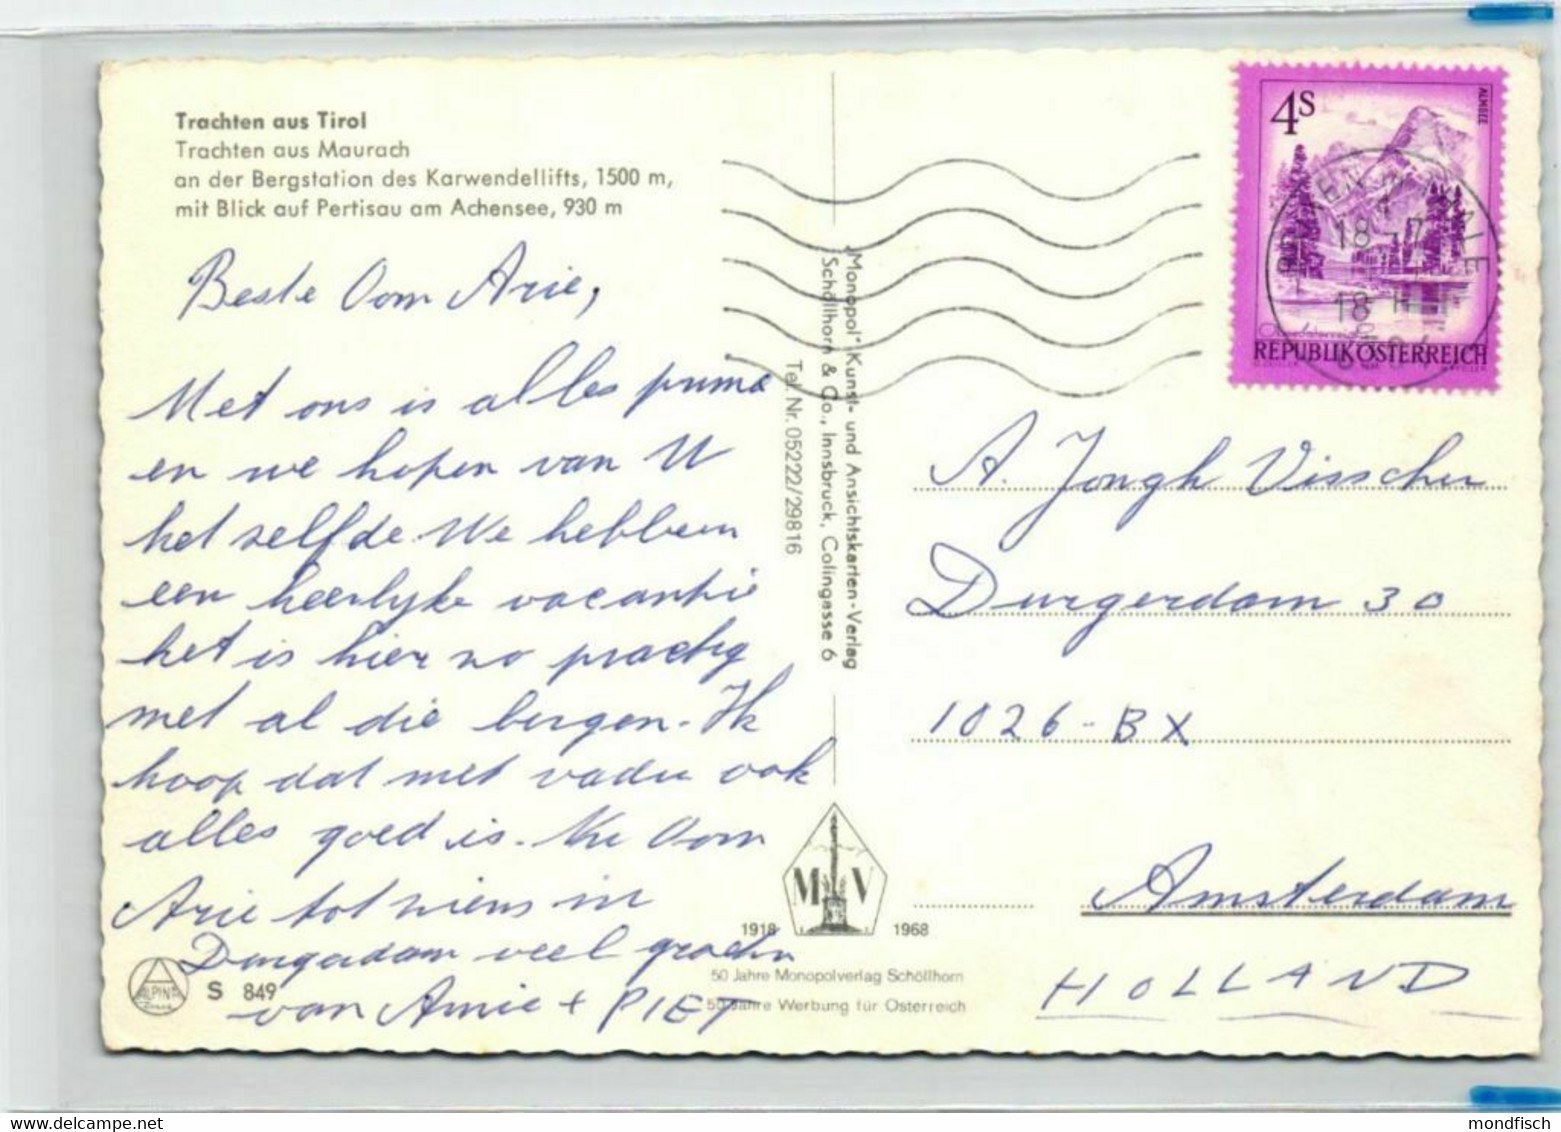 Trachten aus Tirol
Trachten aus Maurach
an der Bergstation des Karwendellifts, 1500 m,
mit Blick auf Pertisau am Achensee, 930 m
Beste Oom Arie,
Met ons is alles prima
en we hopen van U
het zelfde. We hebben
een heerlijke vacantie
het is hier zo prachtig
met al die bergen. Ik
hoop dat met vader ook
alles goed is. Nu Oom
Arie tot ziens in
Durgerdam veel groeten
van Annie + PIET
S 849
ALPINA
"Monopol" Kunst- und Ansichtskarten-Verlag
Schöllhorn & Co., Innsbruck, Colingasse 6
Tel. Nr. 05222/29816
M V
1918 1968
50 Jahre Monopolverlag Schöllhorn
50 Jahre Werbung für Österreich
4S
ALMSEE
18-7
18 H
REPUBLIK ÖSTERREICH
A. Jongh Visscher
Durgerdam 30
1026-BX
Amsterdam
HOLLAND
mondfisch